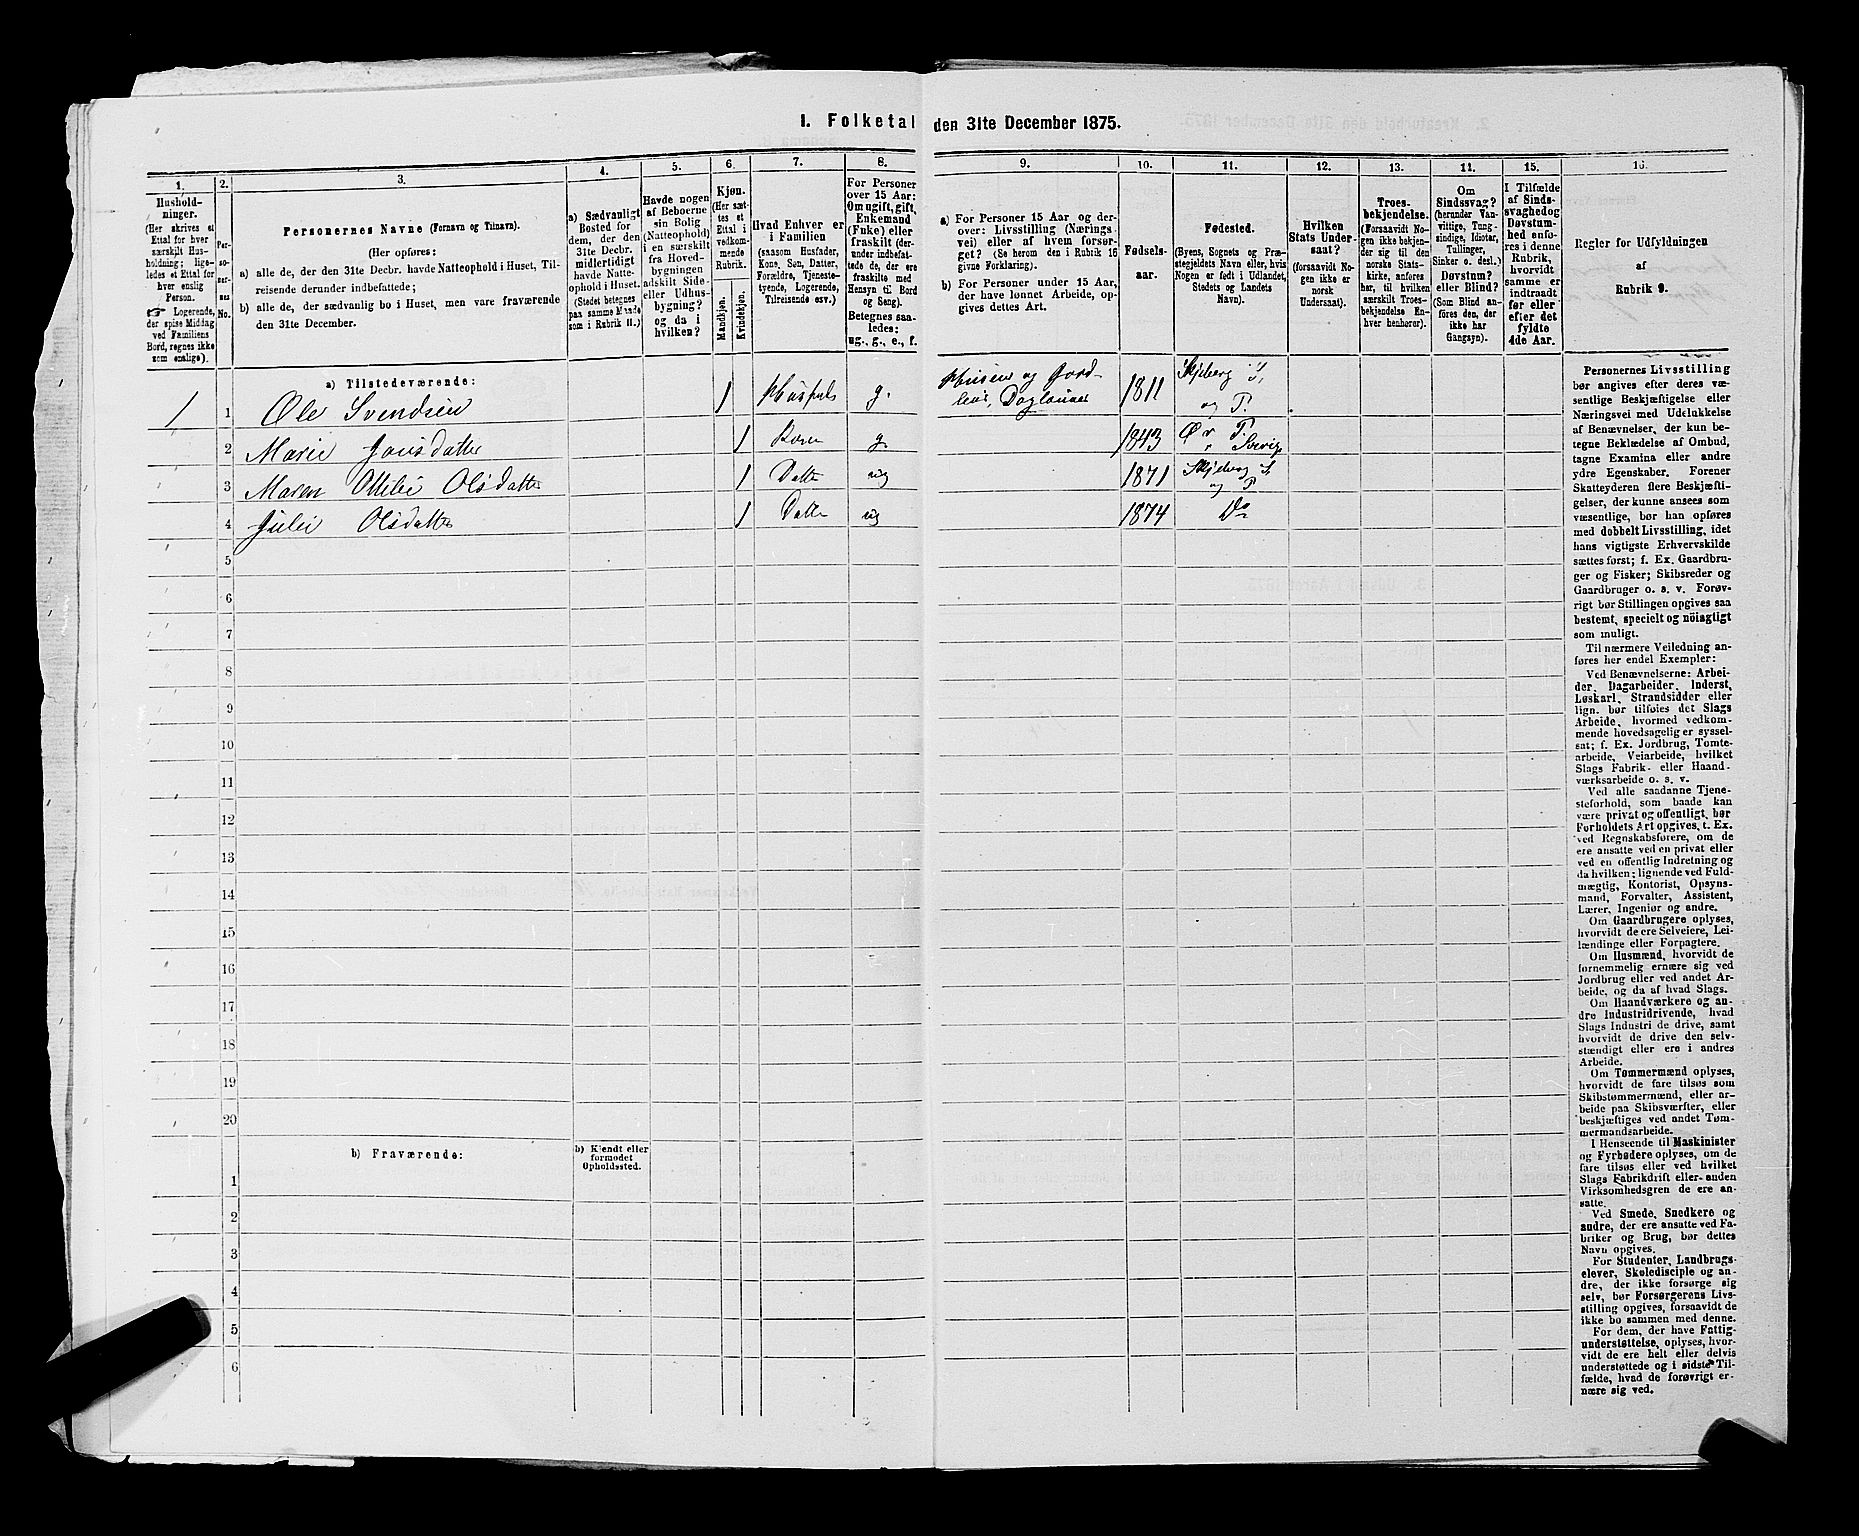 1. Folketal den 31te December 1875.
1.
Hushold-
ninger.
(Her skrives et
Ettal for hver
særskilt Hus-
holdning; lige-
ledes et Ettal for
hver enslig
Person.
☞ Logerende,
der spise Middag
ved Familiens
Bord, regnes ikke
som enslige).
2.
Per-
so-
ner-
nes
No.
3.
Personernes Navne (Fornavn og Tilnavn).
(Her opføres:
a) alle de, der den 31te Decbr. havde Natteophold i Huset, Til-
reisende derunder indbefattede;
b) alle de, der sædvanlig bo i Huset, men vare fraværende
den 31te December.
4.
a) Sædvanligt
Bosted for
dem, der den
31te Decbr.
midlertidigt
havde Natte-
ophold i Huset.
(Stedet betegnes
paa samme Maade
som i Rubrik 11.)
5.
Havde nogen
af Beboerne
sin Bolig
(Natteophold)
i en særskilt
fra Hoved-
bygningen
adskilt Side-
eller Udhus-
bygning?
og da i
hvilken?
6.
Kjøn.
(Her sæt-
tes et
Ettal i
vedkom-
mende
Rubrik.
Mandkjøn.
Kvindekjøn.
7.
Hvad Enhver er
i Familien
(saasom Husfader,
Kone, Søn, Datter,
Forældre, Tjeneste-
tyende, Logerende,
Tilreisende osv.)
8.
For Personer
over 15 Aar:
Om ugift, gift,
Enkemand
(Enke) eller
fraskilt (der-
under indbefat-
tede de, der ere
fraskilte med
Hensyn til Bord
og Seng).
Betegnes saa-
ledes:
ug., g., e., f.
9.
a) For Personer 15 Aar og der-
over: Livsstilling (Nærings-
vei) eller af hvem forsør-
get? (Se herom den i Rubrik 16
givne Forklaring).
b) For Personer under 15 Aar,
der have lønnet Arbeide, op-
gives dettes Art.
10.
Fødsels-
aar.
11.
Fødested.
(Byens, Sognets og Præ-
stegjeldets Navn eller, hvis
Nogen er født i Udlandet,
Stedets og Landets
Navn).
12.
Hvilken
Stats Under-
saat?
(forsaavidt No-
gen ikke er
norsk
Undersaat).
13.
Troes-
bekjendelse.
(Forsaavidt No-
gen ikke bekjen-
der sig til den
norske Stats-
kirke, anføres
her, til hvilken
særskilt Troes-
bekjendelse En-
hver henhører).
14.
Om
Sindssvag?
(herunder Van-
vittige, Tung-
sindige, Idioter,
Tullinger,
Sinker o. desl.)
Døvstum?
eller Blind?
(Som Blind an-
føres den, der
ikke har
Gangsyn).
15.
I Tilfælde
af Sinds-
svaghed og
Døvstum-
hed anfø-
res i denne
Rubrik,
hvorvidt
samme er
indtraadt
før eller
efter det
fyldte
4de Aar.
16.
Regler for Udfyldningen
af
Rubrik 9.
a) Tilstedeværende:
1 1 Ole Svendsen 1 Husfader g. Huseier og Jord-
løs, Daglønner 1811 Skjeberg S.
og P.
2 Marie Jansdatter 1 Kone g. 1843 Ør P.
Sverig
3 Maren Ottilie Olsdatter 1 Datter ug 1871 Skjeberg S.
og P
4 Julie Olsdatter 1 Datter ug 1874 Do
5
6
7
8
9
10
11
12
13
14
15
16
17
18
19
20
b) Fraværende:
b) Kjendt eller
formodet
Opholdssted.
1
2
3
4
5
6
Personernes Livsstilling
bør angives efter deres væ-
sentlige Beskjæftigelse eller
Næringsvei med Udelukkelse
af Benævnelser, der kun be-
tegne Beklædelse af Ombud,
tagne Examina eller andre
ydre Egenskaber. Forener
Skatteyderen flere Beskjæfti-
gelser, der kunne ansees som
væsentlige, bør han opføres
med dobbelt Livsstilling, idet
hans vigtigste Erhvervskilde
sættes først; f. Ex. Gaardbru-
ger og Fisker; Skibsreder og
Gaardbruger o. s. v. Forøv-
rigt bør Stillingen opgives saa
bestemt, specielt og nøiagtigt
som muligt.
Til nærmere Veiledning an-
føres her endel Exempler:
Ved Benævnelserne: Arbei-
der, Dagarbeider, Inderst,
Løskarl, Strandsidder eller
lign. bør tilføies det Slags
Arbeide, hvormed vedkom-
mende hovedsagelig er syssel-
sat; f. Ex. Jordbrug, Tomte-
arbeide, Veiarbeide, hvilket
Slags Fabrik- eller Haand-
værksarbeide o. s. v.
Ved alle saadanne Tjene-
steforhold, som baade kan
være privat og offentligt, bør
Forholdets Art opgives, t. Ex.
ved Regnskabsførere, om de
ere ansatte ved en privat eller
ved en offentlig Indretning og
da hvilken; lignende ved Fuld-
mægtig, Kontorist, Opsyns-
mand, Forvalter, Assistent,
Lærer, Ingeniør og andre.
Om Gaardbrugere oplyses,
hvorvidt de ere Selveiere, Lei-
lændinge eller Forpagtere.
Om Husmænd, hvorvidt de
fornemmelig ernære sig ved
Jordbrug eller ved andet Ar-
beide, og da af hvad Slags.
Om Haandværkere og an-
dre Industridrivende, hvad
Slags Industri de drive, samt
hvorvidt de drive den selv-
stændigt eller ere i andres
Arbeide.
Om Tømmermænd oplyses,
hvorvidt de fare tilsøs som
Skibstømmermænd, eller ar-
beide paa Skibsværfter, eller
beskjæftiges ved andet Tøm-
mermandsarbeide.
I Henseende til Maskinister
og Fyrbødere oplyses, om de
fare tilsøs eller ved hvilket
Slags Fabrikdrift eller anden
Virksomhedsgren de ere an-
satte.
Ved Smede, Snedkere og
andre, der ere ansatte ved Fa-
briker og Brug, bør dettes
Navn opgives.
For Studenter, Landbrugs-
elever, Skoledisciple og an-
dre, der ikke forsørge sig
selv, bør Forsørgerens Livs-
stilling opgives, forsaavidt de
ikke bo sammen med denne.
For dem, der have Fattig-
understøttelse, oplyses, hvor-
vidt de ere helt eller delvis
understøttede og i sidste Til-
fælde, hvad de forøvrigt er-
nære sig ved.